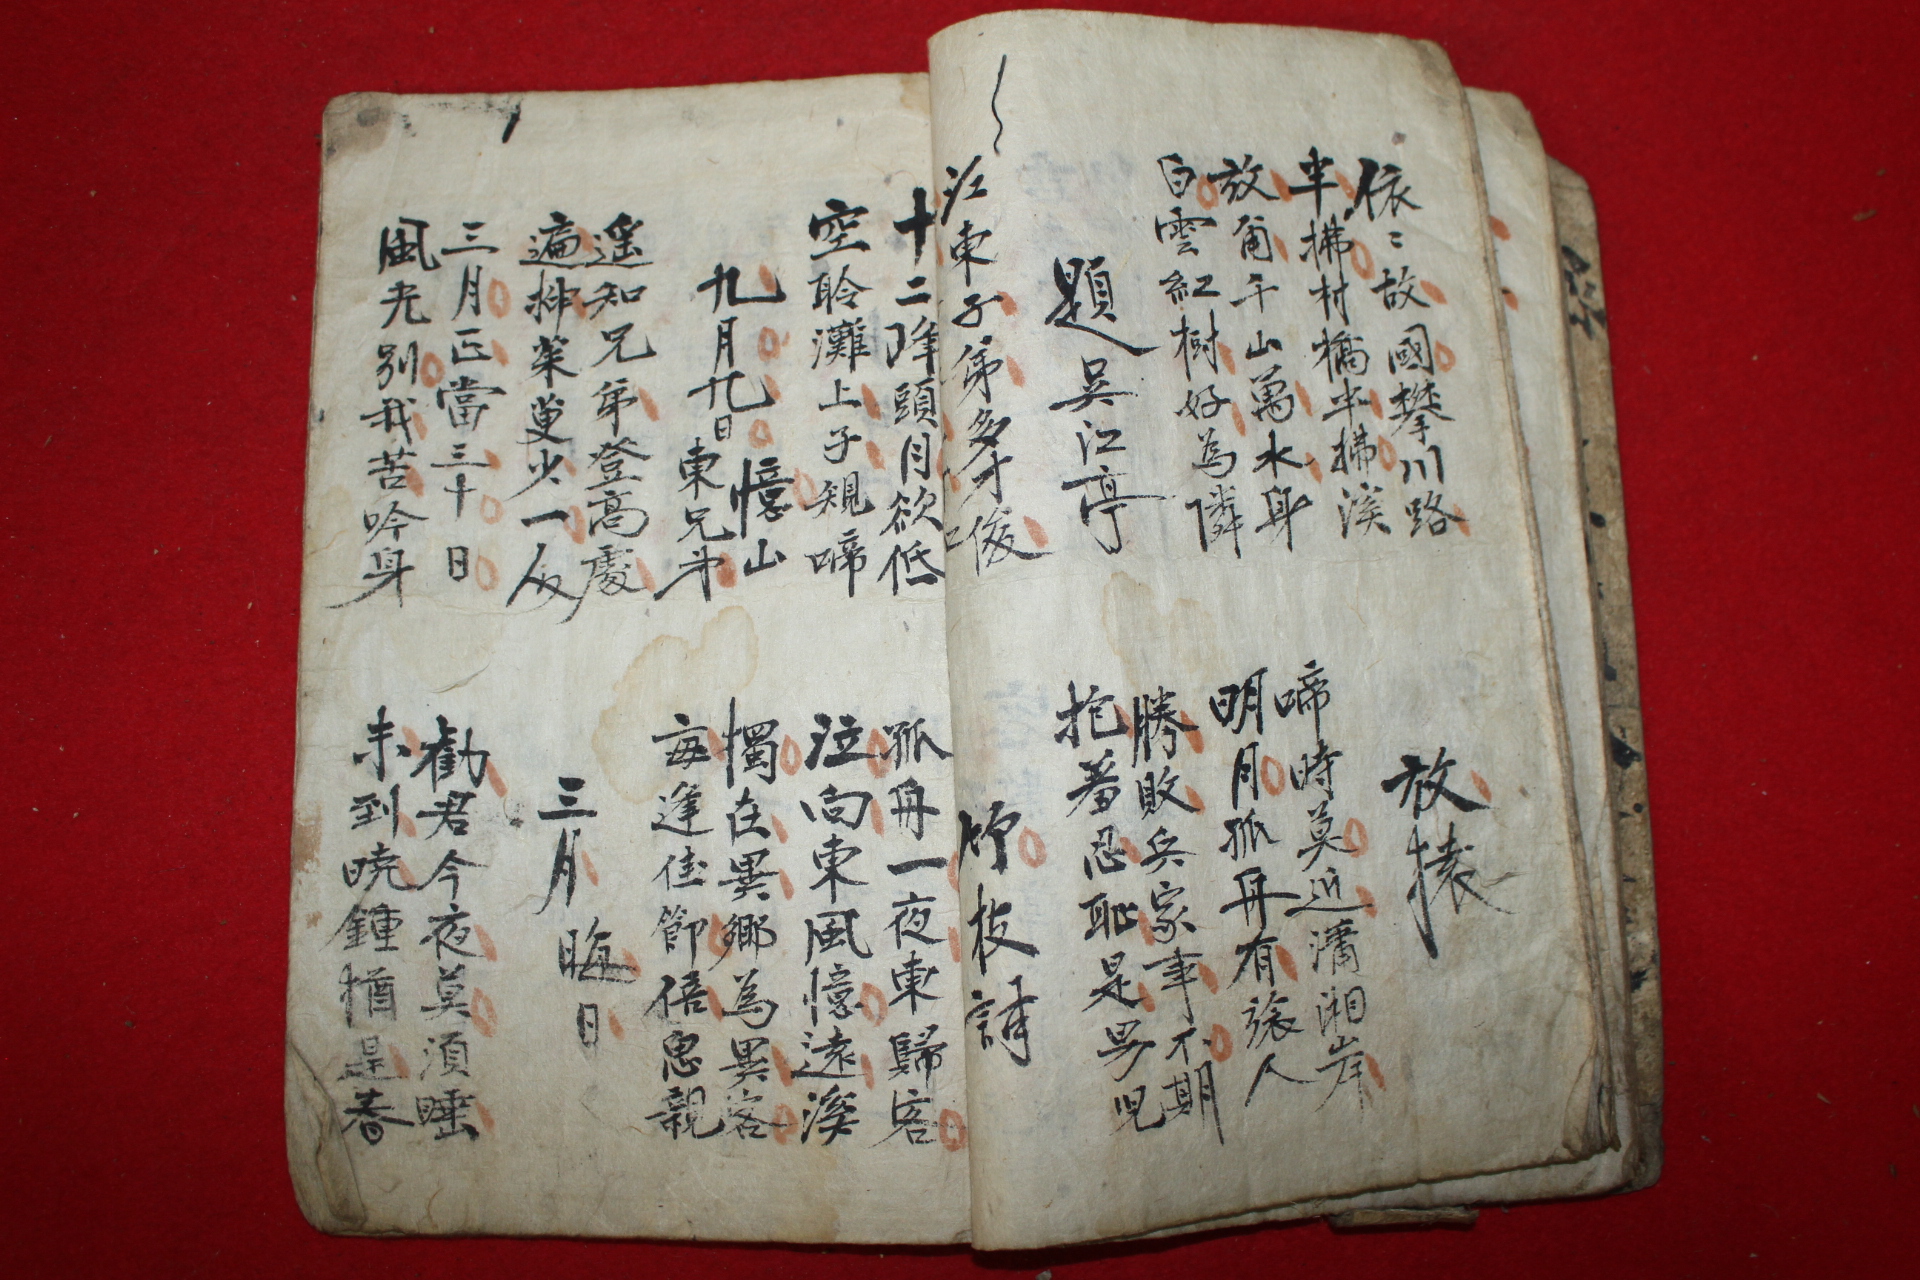 依〻故國攀川路
半掩村橋半掩溪
放猿
放甭千山萬水身
白雲紅樹好為隣
啼時莫近瀟湘岸
明月孤舟有旅人
題吳江亭
勝敗兵家事不期
抱羞忍恥是男兒
江東子弟多才俊
竹枝詞
十二峰頭月欲低
空聆灘上子規啼
孤舟一夜東歸客
泣向東風憶遠溪
九月九日憶山東兄弟
獨在異鄉為異客
每逢佳節倍思親
遙知兄弟登高處
遍揷茱萸少一人
三月晦日
三月正當三十日
風光別我苦吟身
勸君今夜莫須睡
未到曉鍾猶是春